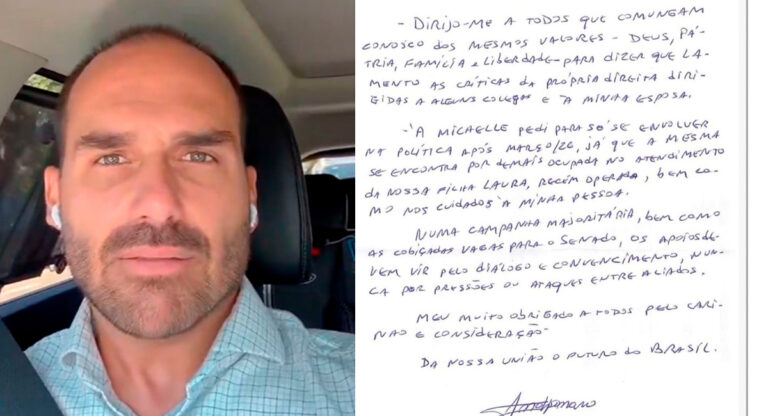 - DIRIJO-ME A TODOS QUE COMUNGAM
CONOSCO DOS MESMOS VALORES - DEUS, PÁ-
TRIA, FAMÍLIA E LIBERDADE - PARA DIZER QUE LA-
MENTO AS CRÍTICAS DA PRÓPRIA DIREITA DIRI-
GIDAS A ALGUNS COLEGAS E A MINHA ESPOSA.
- A MICHELLE PEDI PARA SÓ SE ENVOLVER
NA POLÍTICA APÓS MARÇO/26, JÁ QUE A MESMA
SE ENCONTRA POR DEMAIS OCUPADA NO ATENDIMENTO
DA NOSSA FILHA LAURA, RECÉM OPERADA, BEM CO-
MO NOS CUIDADOS À MINHA PESSOA.
NUMA CAMPANHA MAJORITÁRIA, BEM COMO
AS COBIÇADAS VAGAS PARA O SENADO, OS APOIOS DE-
VEM VIR PELO DIÁLOGO E CONVENCIMENTO, NUN-
CA POR PRESSÕES OU ATAQUES ENTRE ALIADOS.
MEU MUITO OBRIGADO A TODOS PELO CARI-
NHO E CONSIDERAÇÃO
DA NOSSA UNIÃO O FUTURO DO BRASIL.